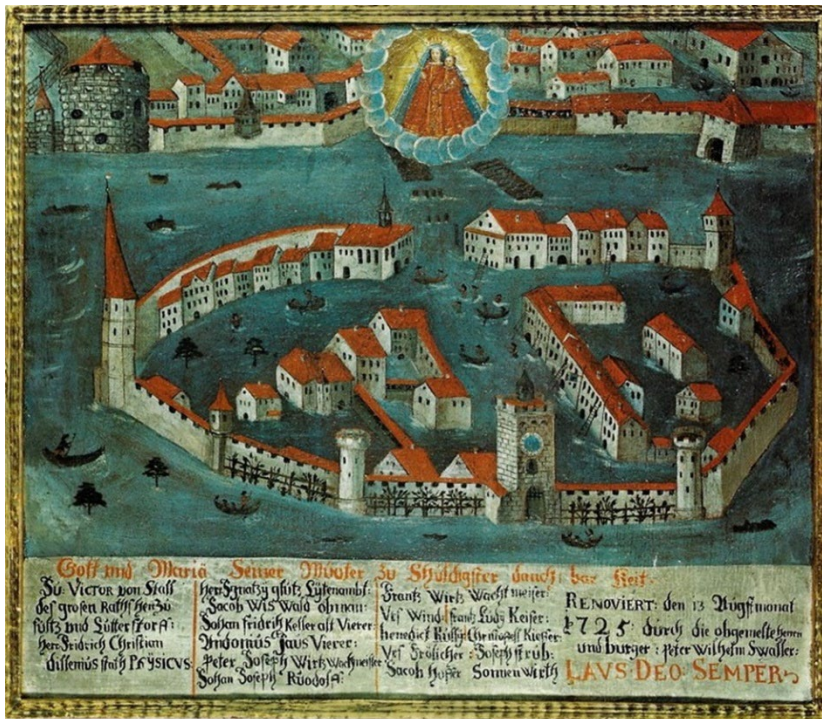 Gott und Mariä Seiner Muoter zu Schuldigster danck bar keit.
Iu: VICTOR von Stall
des grosen Raths Her zů
fultz und Lütterstorf:
Herr Fridrich Christian
PHŸSICVS:
Herr Ignatzy glutz Lŷtenambt:
Jacob Wis Wald obman:
Johan fridrih Keller alt Vierer:
Vierer:
Peter Joseph Wirtz Wachmeister
Johan Joseph Rŭodolf
Frantz Wirtz Wacht meister
Vrs Wind: frantz Ludy Keiser:
benedict Christoffell Kieffer:
Vrs Frölicher: Joseph
Jacob Hoffer Sonnen Wirth
RENOVIERT: den 13 Augstmonat
1725: durch die obgemelte Herren
und burger: Peter Wilhelm
LAVS: DEO: SEMPER